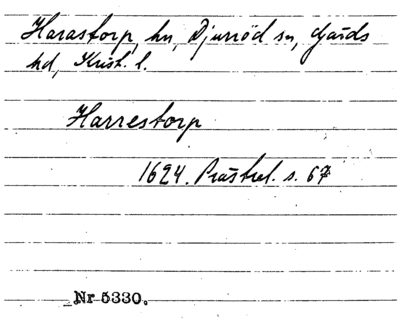 Harastorp, hn, Djurröd sn, Gärds
hd, Krist. l.
Harrestorp
1624. Prästrel. s. 67
Nr 5330.